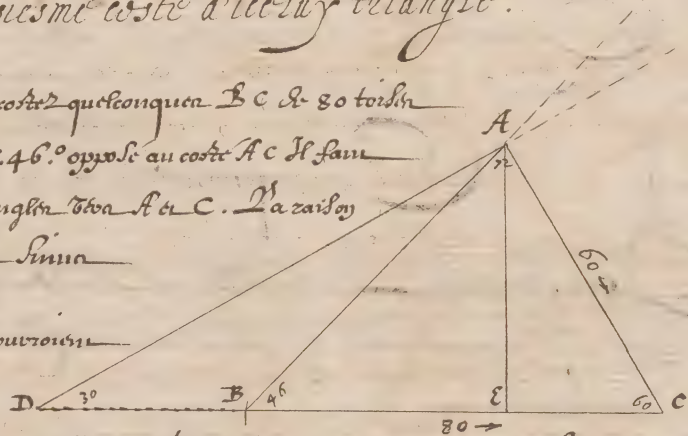 coste d'iceluy triangle.
costez quelconques BC de 80 toises
46.° opposé au coste AC Il faut
angles vers A et C. La raison
A
72
60
ouvroient
D 30 B 46 E 60 C
80